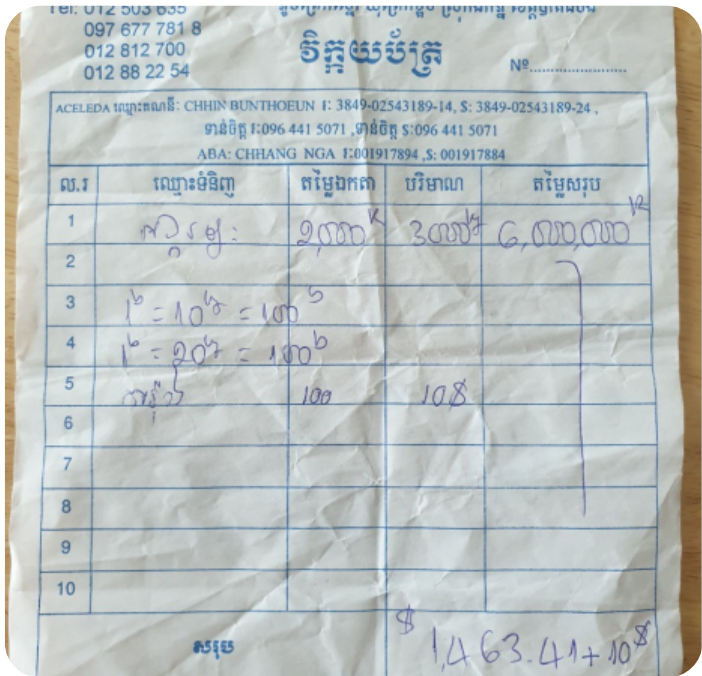 Tel: 012 503 635
097 677 781 8
012 812 700
012 88 22 54
វិក្កយបត្រ
Nº........................
ACELEDA ឈ្មោះគណនី: CHHIN BUNTHOEUN ៛: 3849-02543189-14, $: 3849-02543189-24 ,
ទាន់ចិត្ត ៛:096 441 5071 ,ទាន់ចិត្ត $:096 441 5071
ABA: CHHANG NGA ៛:001917894 ,$: 001917884
ល.រ ឈ្មោះទំនិញ តម្លៃឯកតា បរិមាណ តម្លៃសរុប
1 2,000 3000 6,000,000
2
3 = 10 = 100
4 = 20 = 100
5 100 10$
6
7
8
9
10
សរុប $ 1,463.41 + 10$